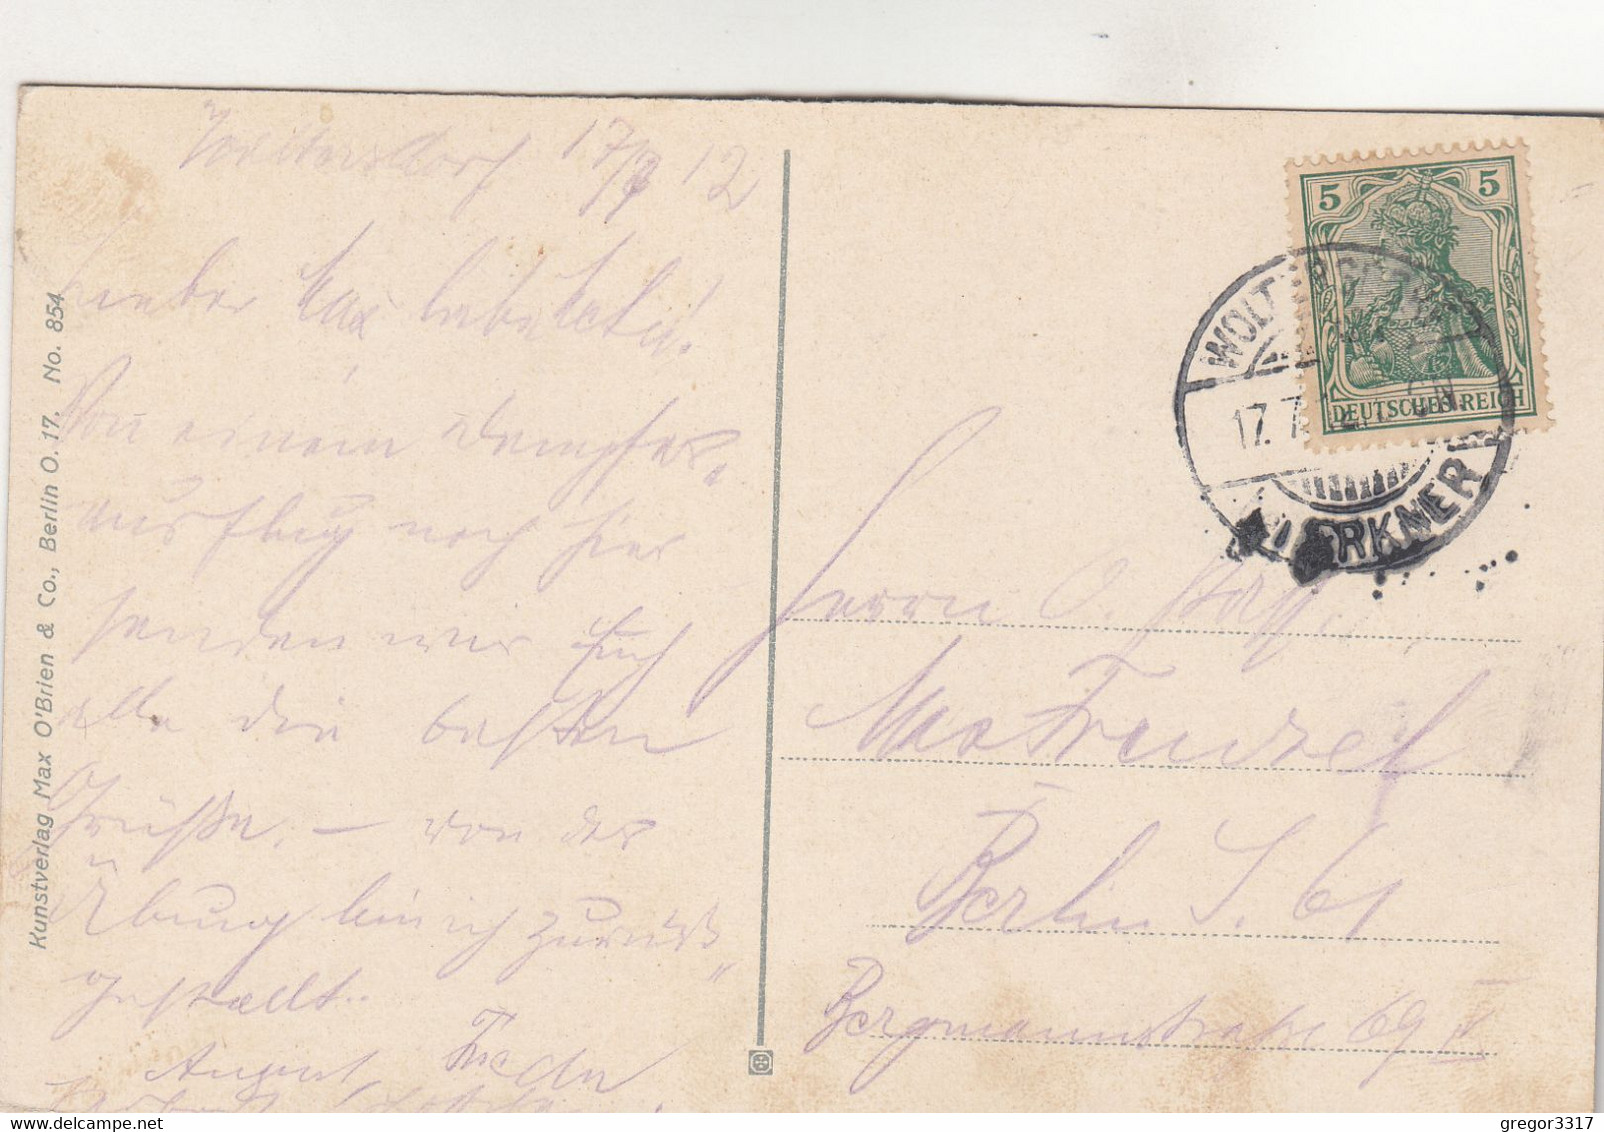 Woltersdorf 17/7 12
Lieber Max
Von einem Dampfer-
ausflug noch hier
senden wir Euch
alle die besten
Grüße, – von der
Übung bin ich zurück
gestellt.
August, Frieda
Kunstverlag Max O'Brien & Co., Berlin O. 17. No. 854
5 5
DEUTSCHES REICH
WOLTERSDORF
17. 7. 12. N.
ERKNER
Herrn O.
Max Frenzel
Berlin S. 61
Bergmannstrasse 69 IV
gregor3317